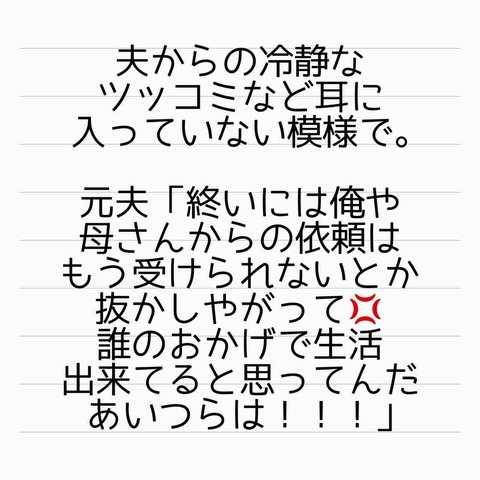 夫からの冷静な
ツッコミなど耳に
入っていない模様で。
元夫「終いには俺や
母さんからの依頼は
もう受けられないとか
抜かしやがって💢
誰のおかげで生活
出来てると思ってんだ
あいつらは！！！」